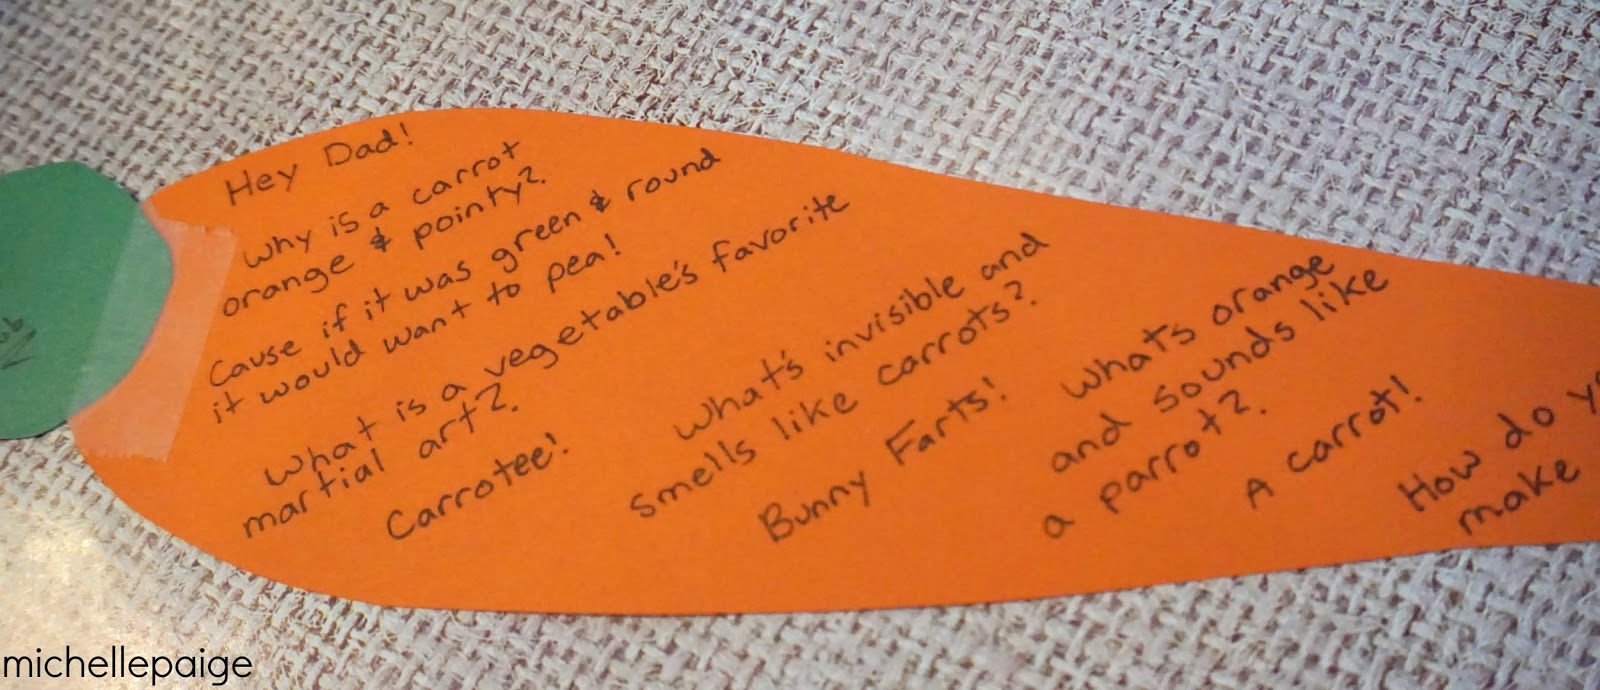 Hey Dad!
Why is a carrot
orange & pointy?
Cause if it was green & round
it would want to pea!
What is a vegetable's favorite
martial art?
Carrotee!
What's invisible and
smells like carrots?
Bunny Farts!
Whats orange
and sounds like
a parrot?
A carrot!
How do
make
michellepaige